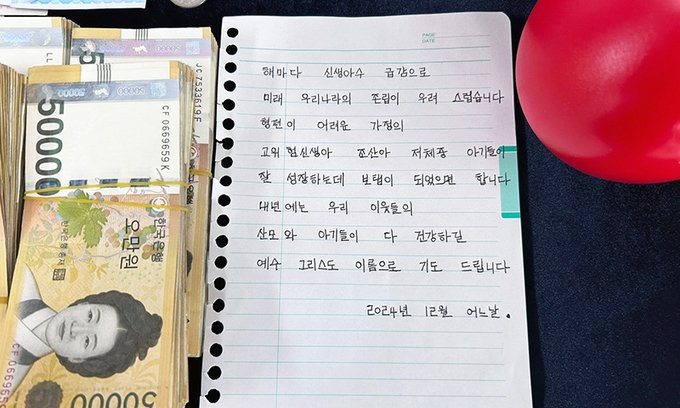 PAGE
DATE
해마다 신생아수 급감으로
미래 우리나라의 존립이 우려 스럽습니다
형편이 어려운 가정의
고위험신생아 조산아 저체중 아기들이
잘 성장하는데 보탬이 되었으면 합니다
내년에는 우리 이웃들의
산모와 아기들이 다 건강하길
예수 그리스도 이름으로 기도 드립니다
2024년 12월 어느날.
50000
CF 0669659K
JC 7533619
한국은행
오만원
한국은행 총재
CF 0669659
50000